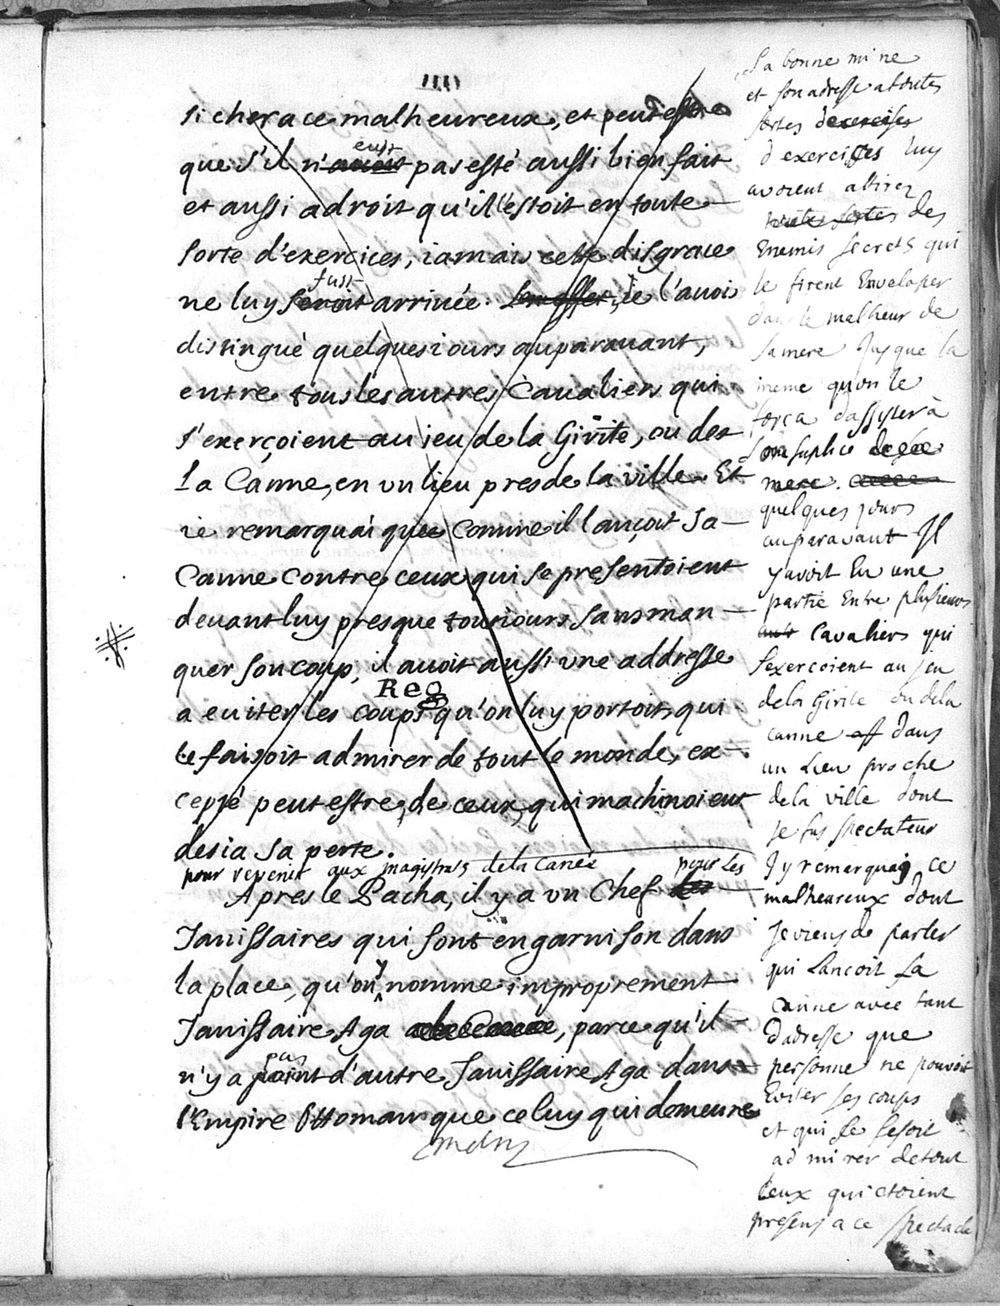 si cher a ce malheureux, et peut estre
que s'il n'avoit eust pas esté aussi bien fait
et aussi adroit qu'il l'estoit en toute
sorte d'exercices, iamais cette disgrace
ne luy seroit fust arriuée. Je l'auois
distingué quelques iours auparauant,
entre tous les autres Caualiers qui
s'exerçoient au ieu de la Girite, ou de
La Canne, en vn lieu pres de la ville. Et
ie remarquai que comme il lançoit sa
Canne contre ceux qui se presentoient
deuant luy presque tousiours sans man-
quer son coup, il auoit aussi vne addresse
Reg
a euiter les coups qu'on luy portoit, qui
le faisoit admirer de tout le monde, ex-
cepté peut estre, de ceux qui machinoient
desia sa perte.
pour revenir aux magistrats de la Canée
Apres le Pacha, il y a vn Chef pour les
Janissaires qui sont en garnison dans
la place, qu'on y nomme improprement
Janissaire Aga, parce qu'il
n'y a point pas d'autre Janissaire Aga dans
l'Empire Ottoman que celuy qui demeure
Sa bonne mine
et son adresse a toutes
sortes d'exercises
d'exercices luy
avoient attirez
toutes sortes des
Enemis secrets qui
le firent Enveloper
dans le malheur de
sa mere Jusque la
meme qu'on le
força d'assister à
son suplice de sa
mere.
quelques jours
auparavant Il
y avoit Eu une
partie Entre plusieurs
cavaliers qui
s'exercoient au Jeu
de la Girite ou de la
canne dans
un Lieu proche
de la ville dont
Je fus spectateur
J'y remarquay ce
malheureux dont
Je viens de parler
qui Lancoit sa
canne avec tant
d'adresse que
personne ne pouvoit
Eviter ses coups
et qui se fesoit
admirer de tout
ceux qui etoient
presens a ce spectacle